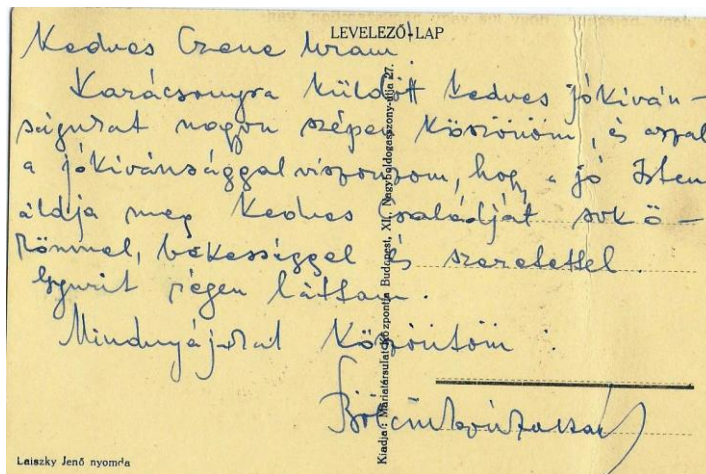 LEVELEZŐ-LAP
Kedves Czene Uram!
Karácsonyra küldött kedves jókíván-
ságukat nagyon szépen köszönöm, és azzal
a jókívánsággal viszonzom, hogy a jó Isten
áldja meg kedves Családját sok ö-
römmel, békességgel és szeretettel.
Gyurit régen láttam.
Mindnyájukat köszöntöm:
Kiadja: Máriatársulat Központja Budapest, XI., Nagyboldogasszony-útja 27.
Laiszky Jenő nyomda